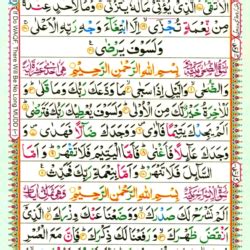 يُؤْتِيْ مَالَهٗ يَتَزَكّٰى ۝ وَمَا لِاَحَدٍ عِنْدَهٗ
مِنْ نِّعْمَةٍ تُجْزٰٓى ۝ اِلَّا ابْتِغَآءَ وَجْهِ رَبِّهِ الْاَعْلٰى ۝
وَلَسَوْفَ يَرْضٰى ۝
بِسْمِ اللّٰهِ الرَّحْمٰنِ الرَّحِيْمِ
وَالضُّحٰى ۝ وَالَّيْلِ اِذَا سَجٰى ۝ مَا وَدَّعَكَ رَبُّكَ وَمَا قَلٰى ۝ وَ
لَلْاٰخِرَةُ خَيْرٌ لَّكَ مِنَ الْاُوْلٰى ۝ وَلَسَوْفَ يُعْطِيْكَ رَبُّكَ فَتَرْضٰى ۝
اَلَمْ يَجِدْكَ يَتِيْمًا فَاٰوٰى ۝ وَوَجَدَكَ ضَآلًّا فَهَدٰى ۝ وَ
وَجَدَكَ عَآئِلًا فَاَغْنٰى ۝ فَاَمَّا الْيَتِيْمَ فَلَا تَقْهَرْ ۝ وَاَمَّا
السَّآئِلَ فَلَا تَنْهَرْ ۝ وَاَمَّا بِنِعْمَةِ رَبِّكَ فَحَدِّثْ ۝
بِسْمِ اللّٰهِ الرَّحْمٰنِ الرَّحِيْمِ
اَلَمْ نَشْرَحْ لَكَ صَدْرَكَ ۝ وَوَضَعْنَا عَنْكَ وِزْرَكَ ۝ الَّذِيْٓ
اَنْقَضَ ظَهْرَكَ ۝ وَرَفَعْنَا لَكَ ذِكْرَكَ ۝ فَاِنَّ مَعَ الْعُسْرِ